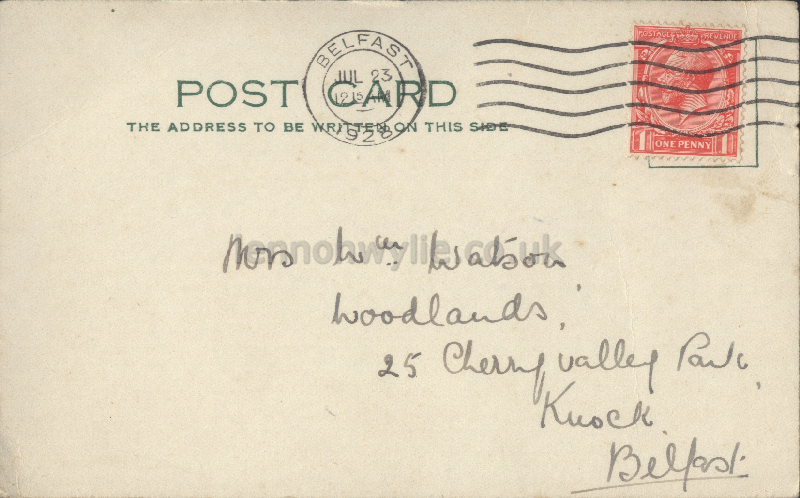 BELFAST
JUL 23
12 15 AM
1928
POSTAGE REVENUE
1 ONE PENNY 1
POST CARD
THE ADDRESS TO BE WRITTEN ON THIS SIDE
lennonwylie.co.uk
Mrs Wm Watson
Woodlands,
25 Cherryvalley Park,
Knock
Belfast